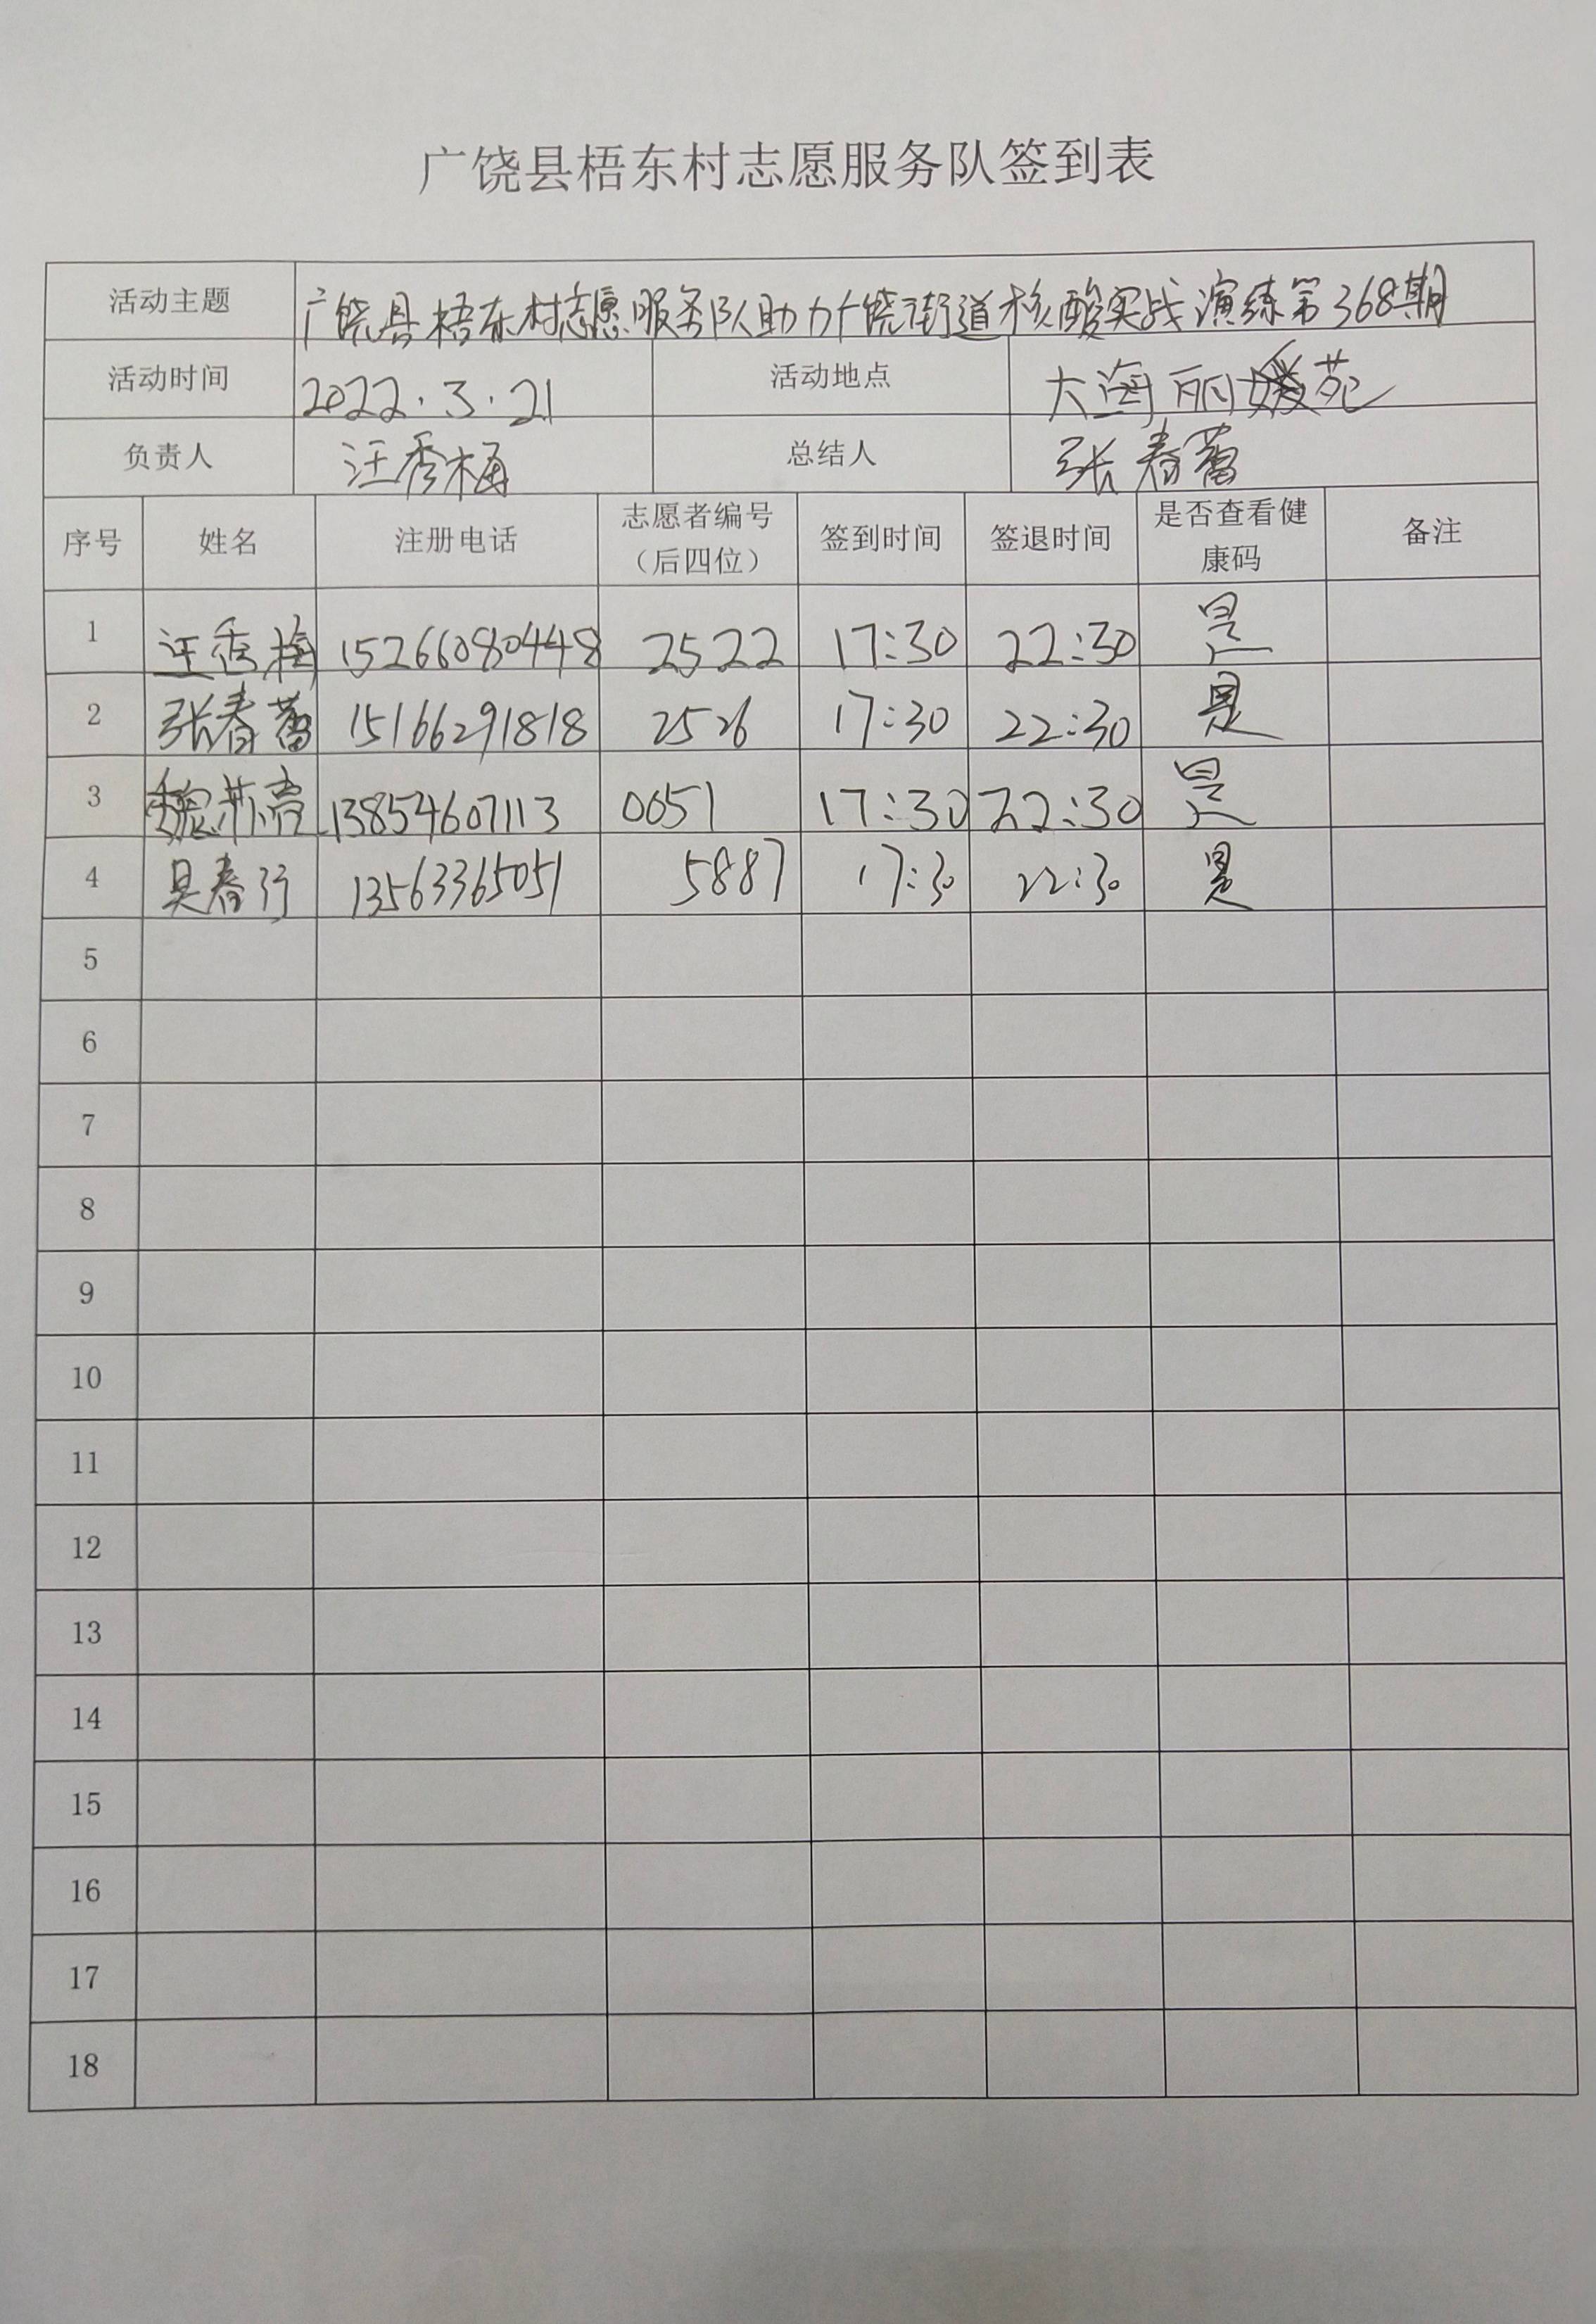 广饶县梧东村志愿服务队签到表
活动主题 广饶县梧东村志愿服务队助力广饶街道核酸实战演练第368期
活动时间 2022.3.21 活动地点 大海丽苑
负责人 汪秀梅 总结人 张春蕾
序号 姓名 注册电话 志愿者编号（后四位） 签到时间 签退时间 是否查看健康码 备注
1 汪秀梅 15266080448 2522 17:30 22:30 是
2 张春蕾 15166291818 2526 17:30 22:30 是
3 13854607113 0051 17:30 22:30 是
4 吴春行 13563365051 5887 17:30 22:30 是
5
6
7
8
9
10
11
12
13
14
15
16
17
18